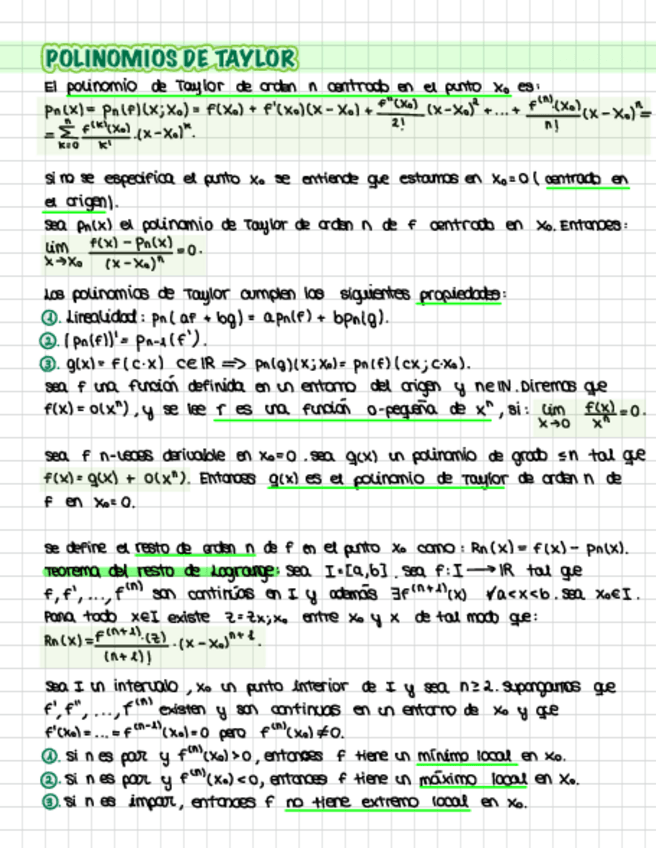 POLINOMIOS DE TAYLOR
El polinomio de Taylor de orden n centrado en el punto x₀ es:
Pn(x) = Pn(f)(x; x₀) = f(x₀) + f'(x₀)(x - x₀) + f''(x₀)/2! (x-x₀)² + ... + f⁽ⁿ⁾(x₀)/n! (x-x₀)ⁿ =
= Σ_{k=0}^{n} f⁽ᵏ⁾(x₀)/k! · (x-x₀)ᵏ.
si no se especifica el punto x₀ se entiende que estamos en x₀=0 (centrado en
el origen).
sea pn(x) el polinomio de Taylor de orden n de f centrado en x₀. Entonces:
lim_{x→x₀} (f(x) - Pn(x))/(x-x₀)ⁿ = 0.
Los polinomios de Taylor cumplen las siguientes propiedades:
①. Linealidad: Pn(af + bg) = apn(f) + bpn(g).
②. (Pn(f))' = Pn-1(f').
③. g(x) = f(c·x) c∈ℝ => Pn(g)(x; x₀) = Pn(f)(cx; c·x₀).
sea f una función definida en un entorno del origen y n∈ℕ. Diremos que
f(x) = o(xⁿ), y se lee f es una función o-pequeña de xⁿ, si: lim_{x→0} f(x)/xⁿ = 0.
sea f n-veces derivable en x₀=0. sea g(x) un polinomio de grado ≤n tal que
f(x) = g(x) + o(xⁿ). Entonces g(x) es el polinomio de Taylor de orden n de
f en x₀=0.
se define el resto de orden n de f en el punto x₀ como: Rn(x) = f(x) - Pn(x).
Teorema del resto de Lagrange: sea I=[a,b]. sea f: I → ℝ tal que
f, f', ..., f⁽ⁿ⁾ son continuas en I y además ∃f⁽ⁿ⁺¹⁾(x) ∀a<x<b. sea x₀∈I.
Para todo x∈I existe z=zx;x₀ entre x₀ y x de tal modo que:
Rn(x) = f⁽ⁿ⁺¹⁾(z)/(n+1)! · (x-x₀)ⁿ⁺¹.
sea I un intervalo, x₀ un punto interior de I y sea n≥2. supongamos que
f', f'', ..., f⁽ⁿ⁾ existen y son continuas en un entorno de x₀ y que
f'(x₀) = ... = f⁽ⁿ⁻¹⁾(x₀) = 0 pero f⁽ⁿ⁾(x₀) ≠ 0.
①. si n es par y f⁽ⁿ⁾(x₀) > 0, entonces f tiene un mínimo local en x₀.
②. si n es par y f⁽ⁿ⁾(x₀) < 0, entonces f tiene un máximo local en x₀.
③. si n es impar, entonces f no tiene extremo local en x₀.